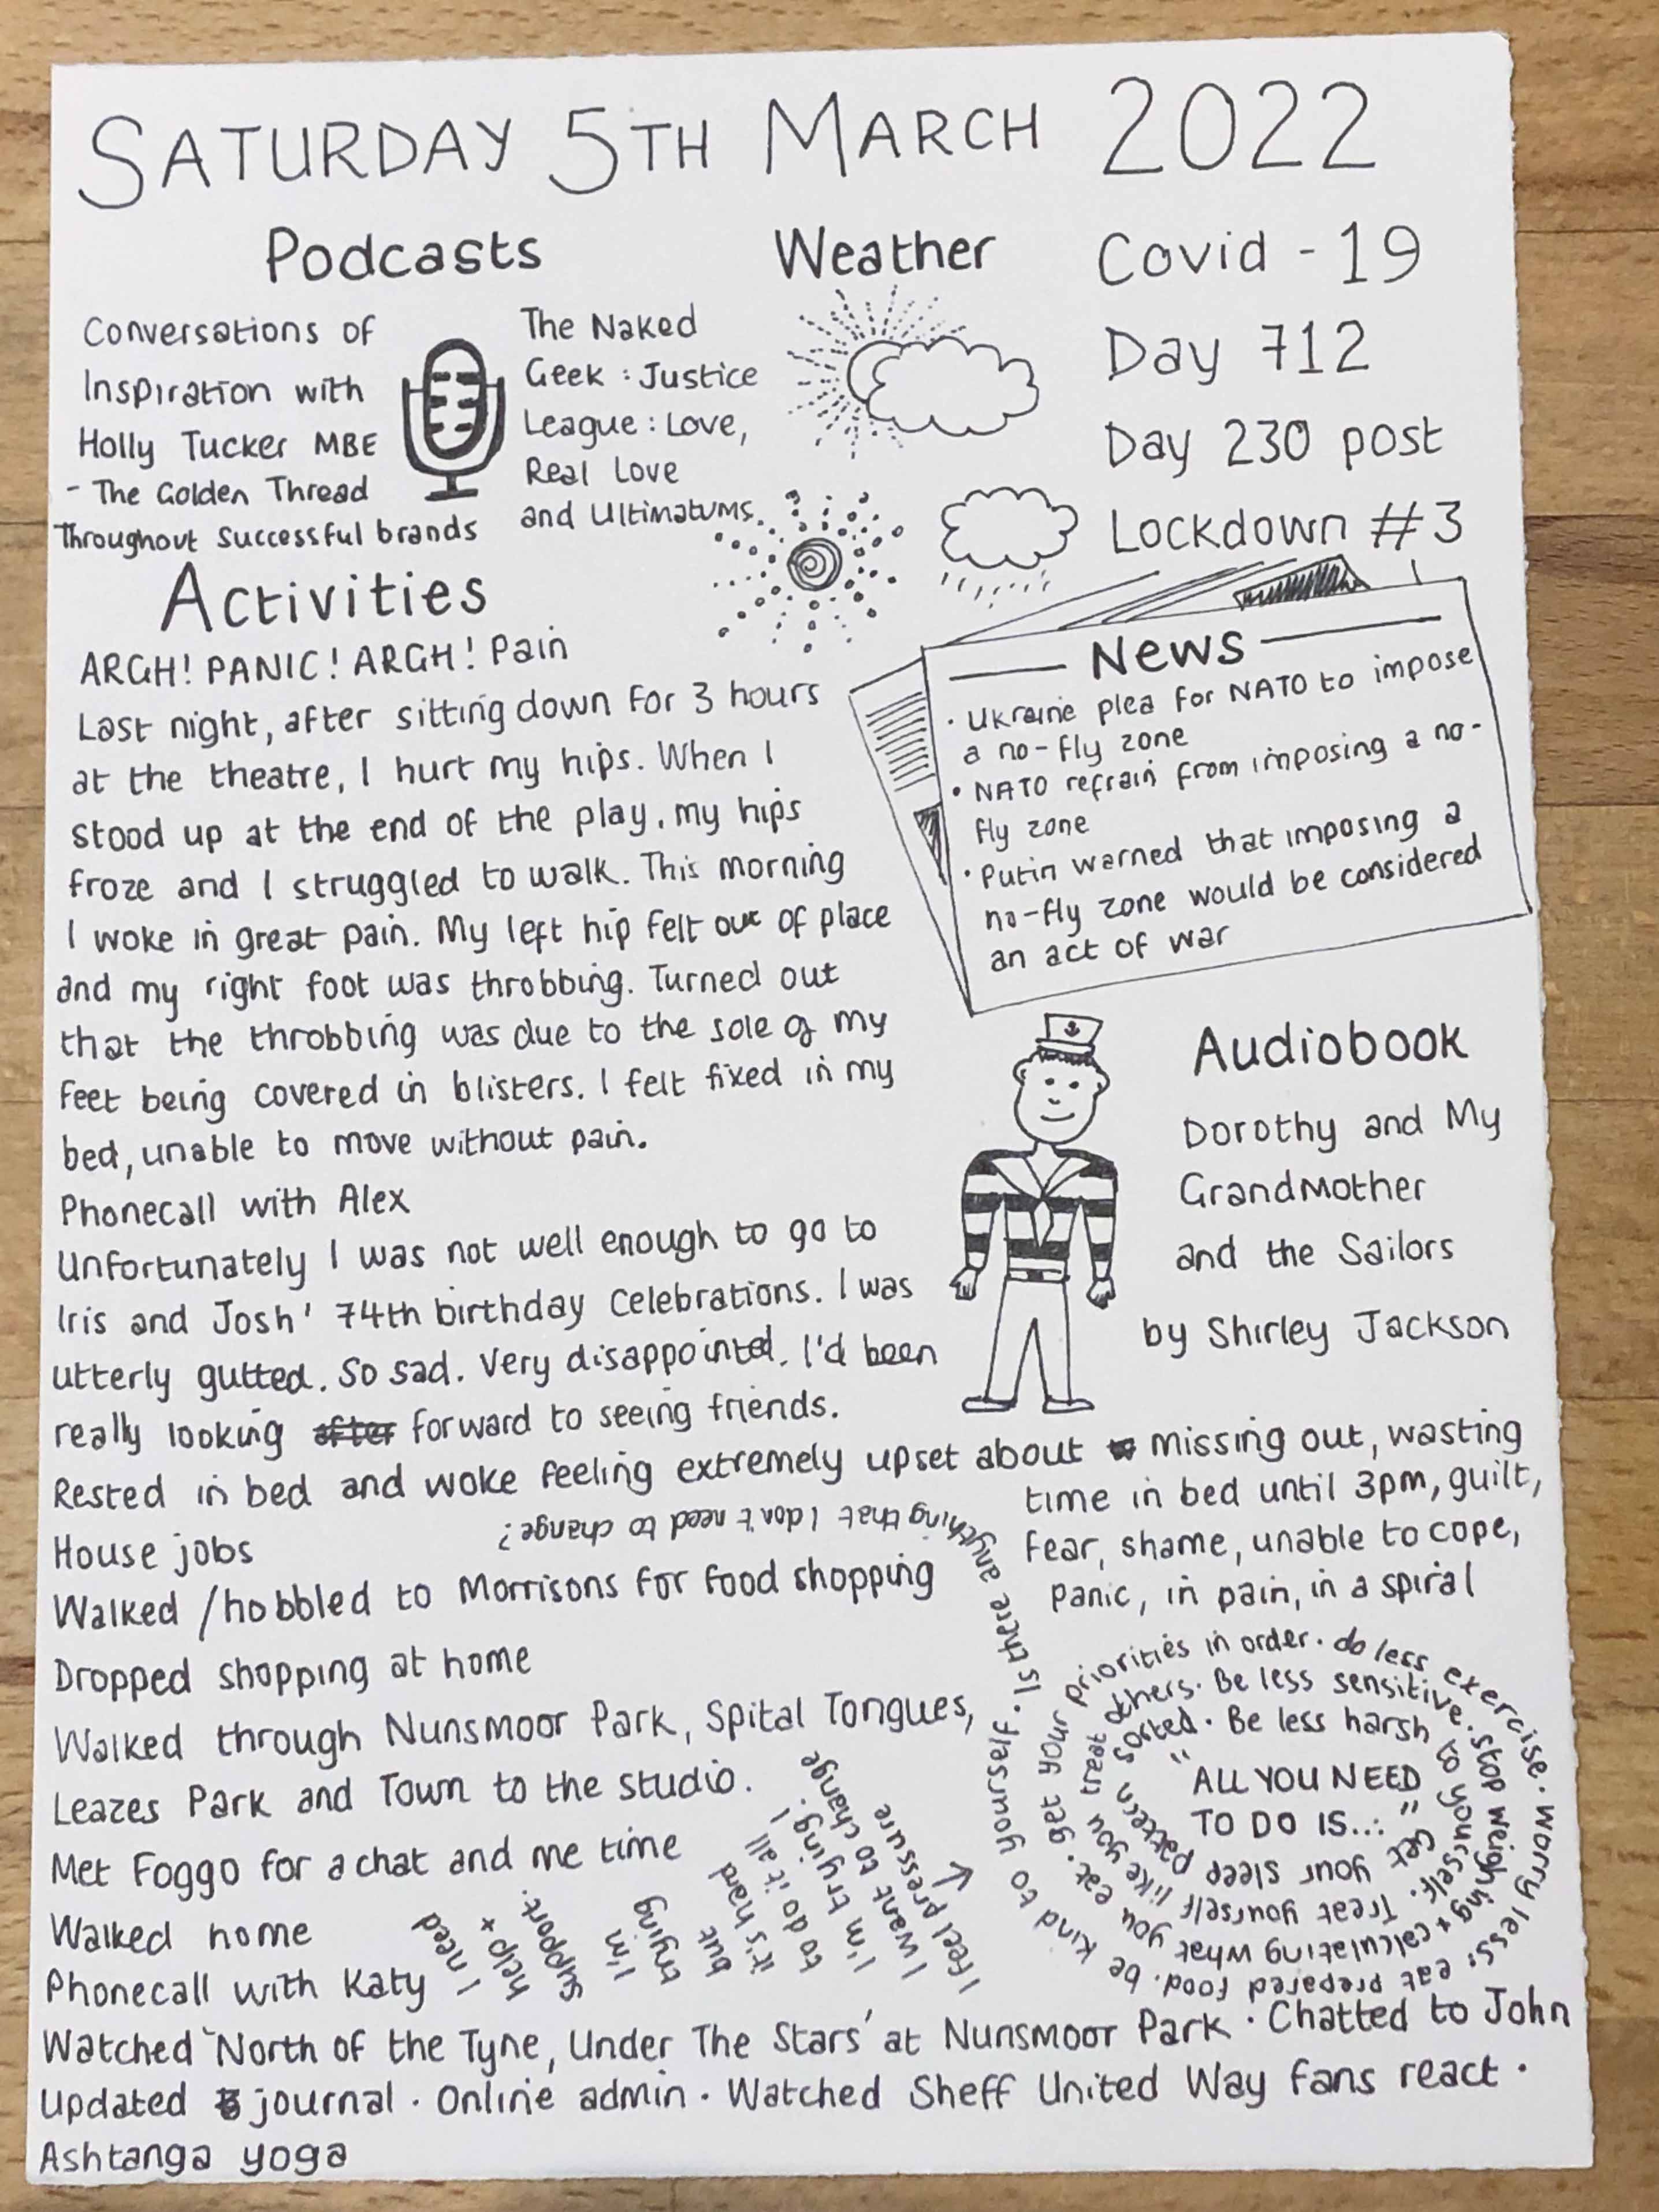 SATURDAY 5TH MARCH 2022
Podcasts
Conversations of
Inspiration with
Holly Tucker MBE
- The Golden Thread
Throughout Successful brands
The Naked
Geek : Justice
League : Love,
Real Love
and Ultimatums.
Weather
Covid - 19
Day 712
Day 230 post
Lockdown #3
News
· Ukraine plea for NATO to impose
a no-fly zone
· NATO refrain from imposing a no-
fly zone
· Putin warned that imposing a
no-fly zone would be considered
an act of war
Activities
ARGH! PANIC! ARGH! Pain
Last night, after sitting down for 3 hours
at the theatre, I hurt my hips. When I
stood up at the end of the play, my hips
froze and I struggled to walk. This morning
I woke in great pain. My left hip felt out of place
and my right foot was throbbing. Turned out
that the throbbing was due to the sole of my
feet being covered in blisters. I felt fixed in my
bed, unable to move without pain.
Phonecall with Alex
Unfortunately I was not well enough to go to
Iris and Josh' 74th birthday celebrations. I was
utterly gutted. So sad. Very disappointed. I'd been
really looking after forward to seeing friends.
Audiobook
Dorothy and My
Grandmother
and the Sailors
by Shirley Jackson
Rested in bed and woke feeling extremely upset about missing out, wasting
time in bed until 3pm, guilt,
fear, shame, unable to cope,
panic, in pain, in a spiral
House jobs
Walked / hobbled to Morrisons for food shopping
Dropped shopping at home
Walked through Nunsmoor Park, Spital Tongues,
Leazes Park and Town to the studio.
Met Foggo for a chat and me time
Walked home
Phonecall with Katy
"ALL YOU NEED
TO DO IS...:"
Get your sleep pattern sorted. Be less harsh to yourself. Treat yourself like you treat others. Be less sensitive. stop weighing + calculating what you eat. get your priorities in order. do less exercise. worry less. eat prepared food. be kind to yourself. Is there anything that I don't need to change?
I need
help +
support.
I'm
trying
but
it's hard
to do it all
I'm trying. I
I want to change
I feel pressure
Watched 'North of the Tyne, Under The Stars' at Nunsmoor Park · Chatted to John
Updated journal · Online admin · Watched Sheff United Way fans react ·
Ashtanga yoga